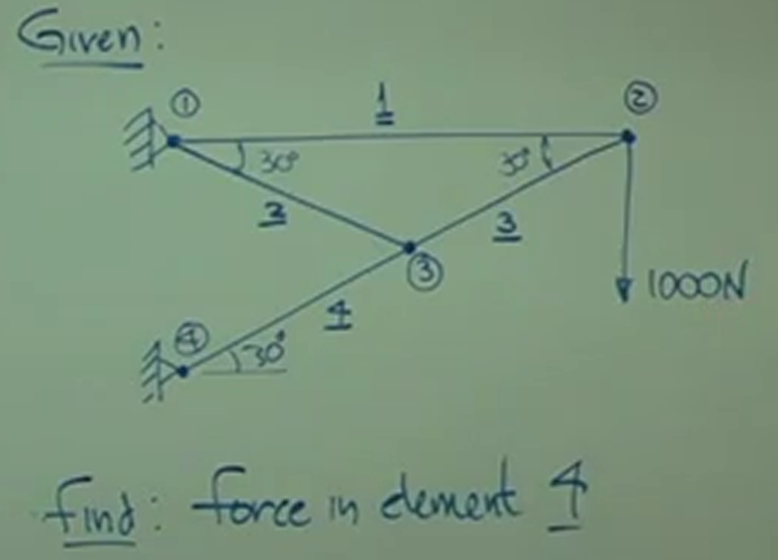 Given:
① 1 ②
30° 30°
2 3
③
1000N
4
④ 30°
Find: force in element 4